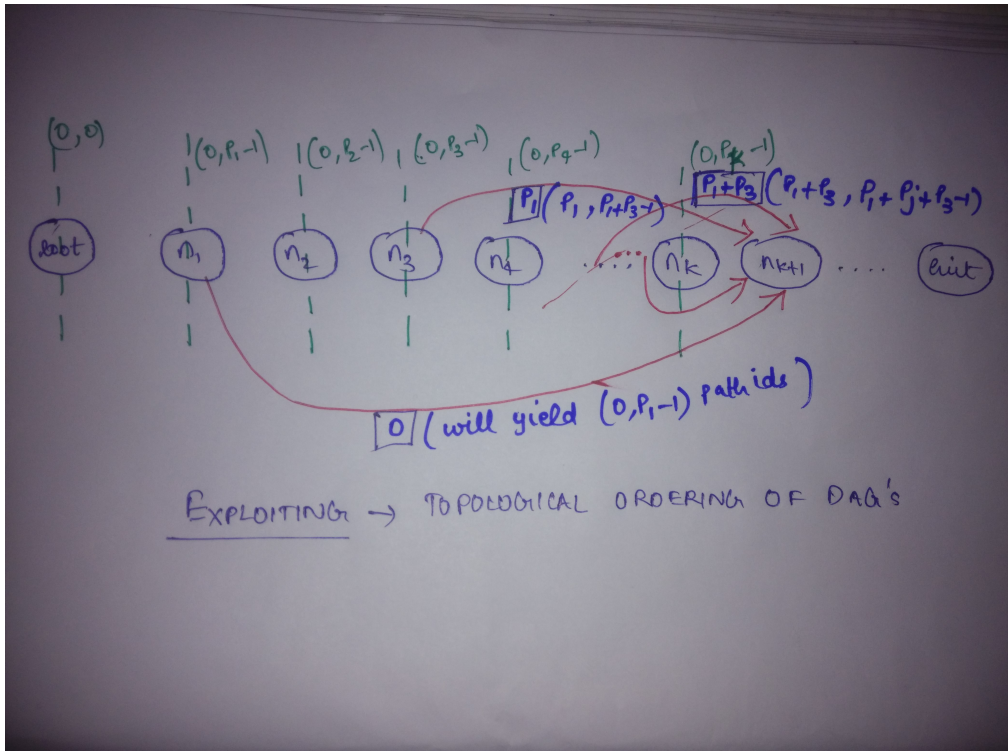 (0,0)
(0,P₁-1) (0,P₂-1) (0,P₃-1) (0,P₄-1) (0,Pk-1)
P₁ (P₁, P₁+P₃-1) P₁+P₃ (P₁+P₃, P₁+Pj+P₃-1)
root n₁ n₂ n₃ n₄ ..... nk nk+1 .... exit
0 (will yield (0,P₁-1) path ids)
EXPLOITING → TOPOLOGICAL ORDERING OF DAG's